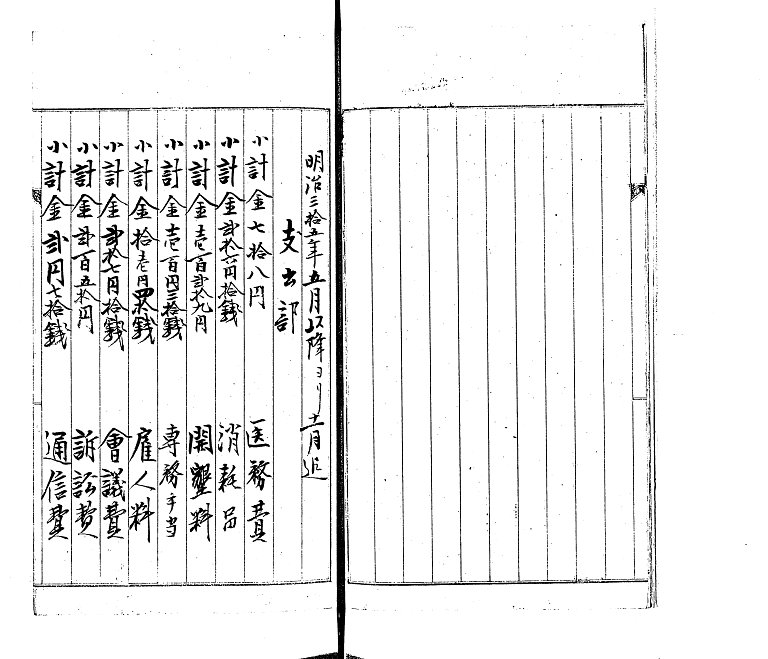 明治三拾五年五月以降ヨリ十一月迄
支出部
小計金七拾八円 医務費
小計金弐拾六円拾銭 消耗品
小計金壱百弐拾九円 開墾料
小計金壱百円三拾銭 専務手当
小計金拾壱円四拾銭 雇人料
小計金弐拾七円拾銭 會議費
小計金弐百五拾円 訴訟費
小計金弐円七拾銭 通信費